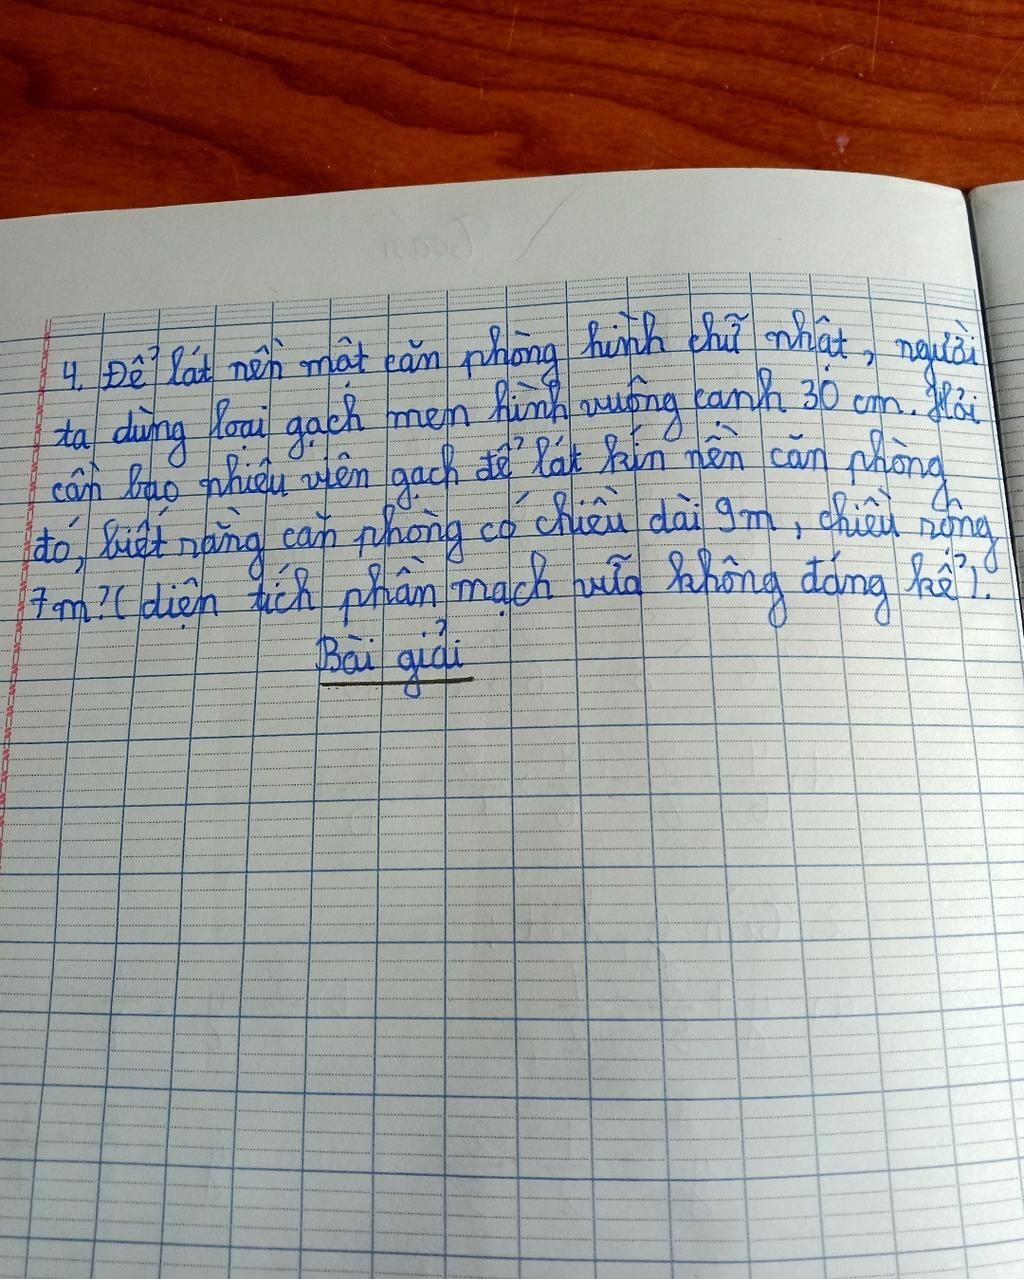 4. Để lát nền một căn phòng hình chữ nhật, người
ta dùng loại gạch men hình vuông cạnh 30 cm. Hỏi
cần bao nhiêu viên gạch để lát kín nền căn phòng
đó, biết rằng căn phòng có chiều dài 9m, chiều rộng
7m? (diện tích phần mạch vữa không đáng kể).
Bài giải